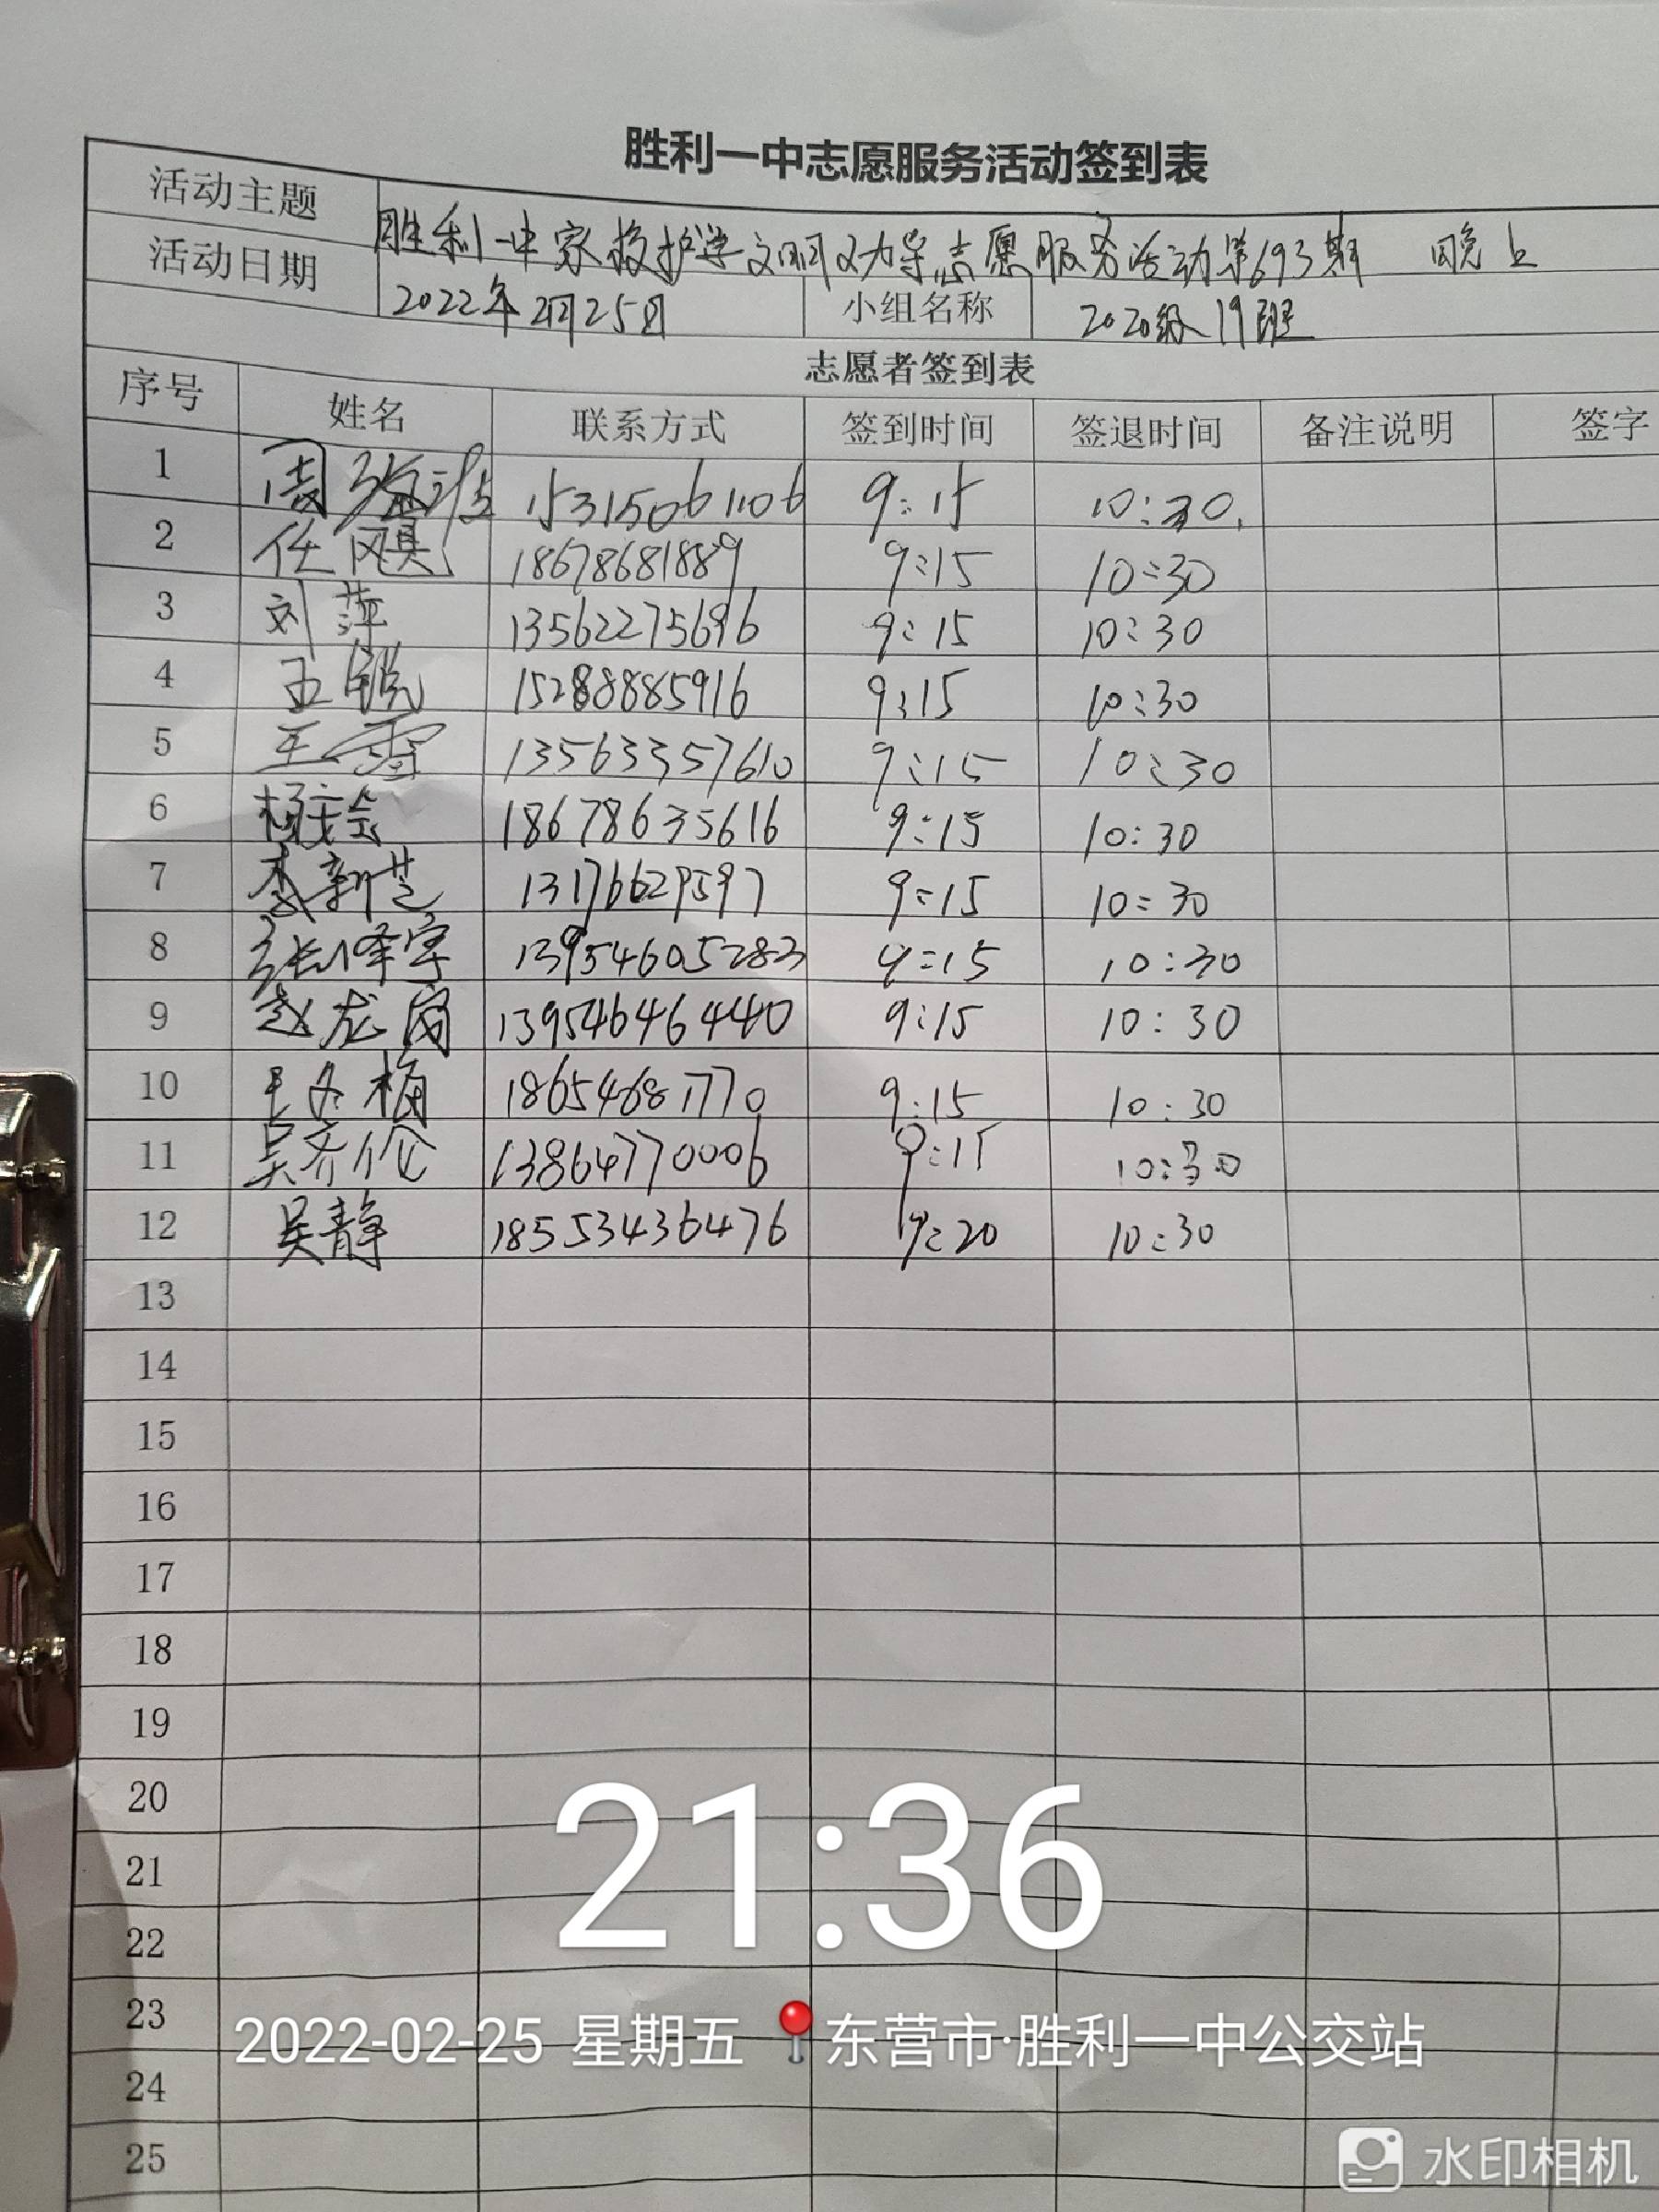 胜利一中志愿服务活动签到表
活动主题 胜利一中家校护学文明劝导志愿服务活动第693期 晚上
活动日期 2022年2月25日 小组名称 2020级19班
志愿者签到表
序号 姓名 联系方式 签到时间 签退时间 备注说明 签字
1 周 15315061106 9:15 10:30
2 任飓 18678681889 9:15 10:30
3 刘萍 13562275696 9:15 10:30
4 王锐 15288885916 9:15 10:30
5 王雪 13563357610 9:15 10:30
6 杨会 18678635616 9:15 10:30
7 李新芝 13176629597 9:15 10:30
8 张峰宇 13954605283 9:15 10:30
9 赵龙 13954646440 9:15 10:30
10 王冬梅 18654681770 9:15 10:30
11 吴齐伦 13864770006 9:15 10:30
12 吴静 18553436476 9:20 10:30
13
14
15
16
17
18
19
20
21
22
23
24
25
21:36
2022-02-25 星期五 东营市·胜利一中公交站
水印相机